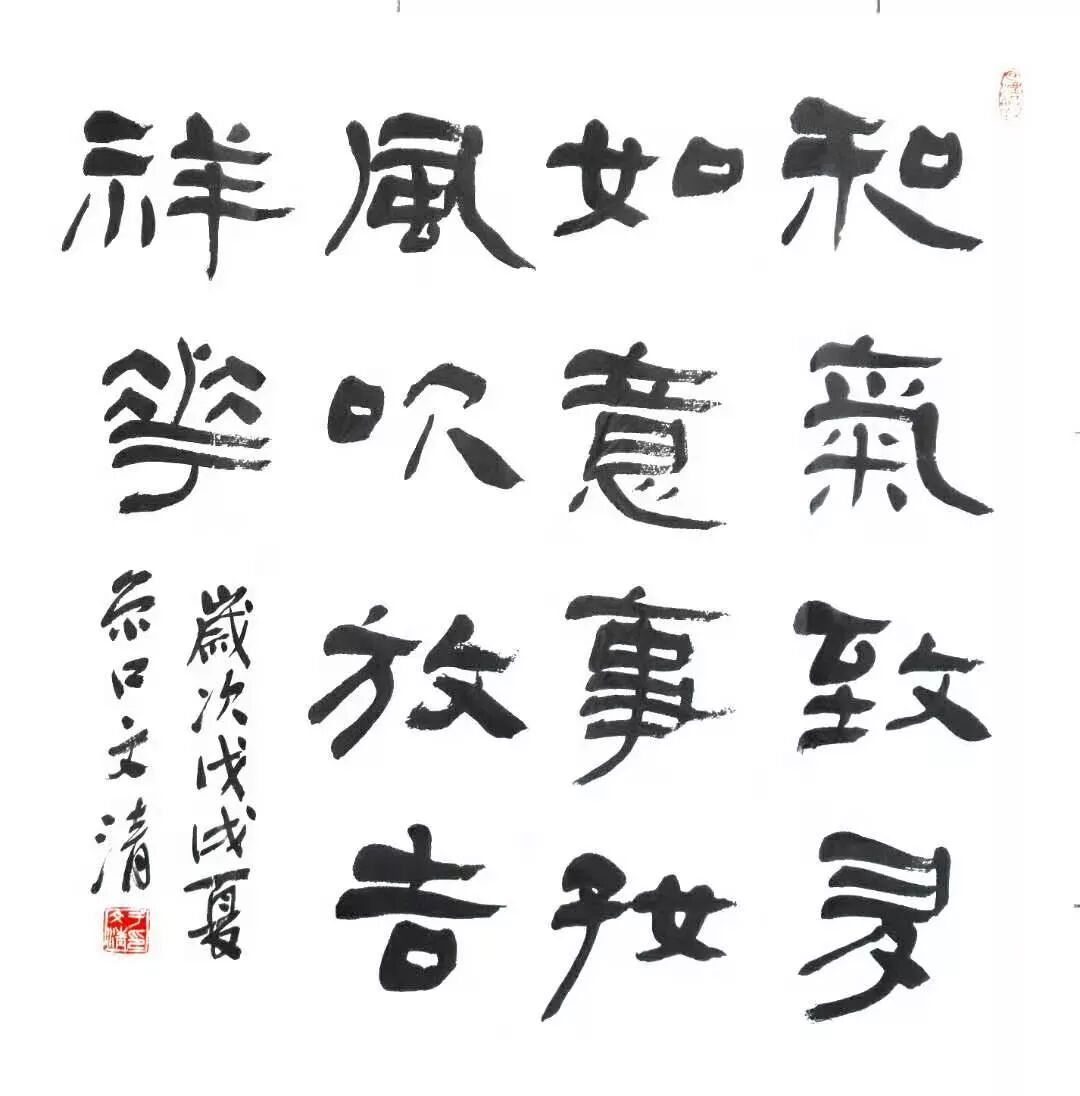 和氣致多
如意事好
風吹放吉
祥花
歲次戊戌夏
口文清